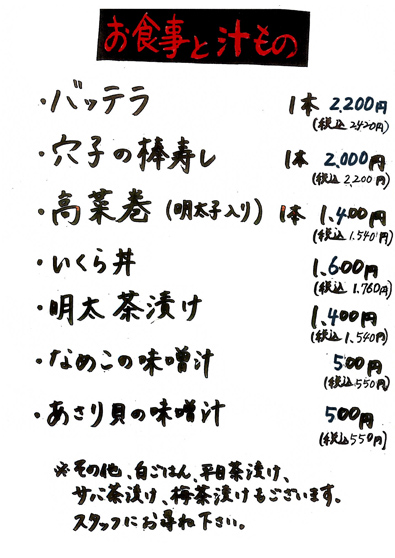 お食事と汁もの
・バッテラ 1本 2,200円
(税込 2420円)
・穴子の棒寿し 1本 2,000円
(税込 2,200円)
・高菜巻(明太子入り) 1本 1,400円
(税込 1.540円)
・いくら丼 1,600円
(税込 1,760円)
・明太茶漬け 1,400円
(税込 1,540円)
・なめこの味噌汁 500円
(税込550円)
・あさり貝の味噌汁 500円
(税込550円)
※その他、白ごはん、平目茶漬け、
サバ茶漬け、梅茶漬けもございます。
スタッフにお尋ね下さい。